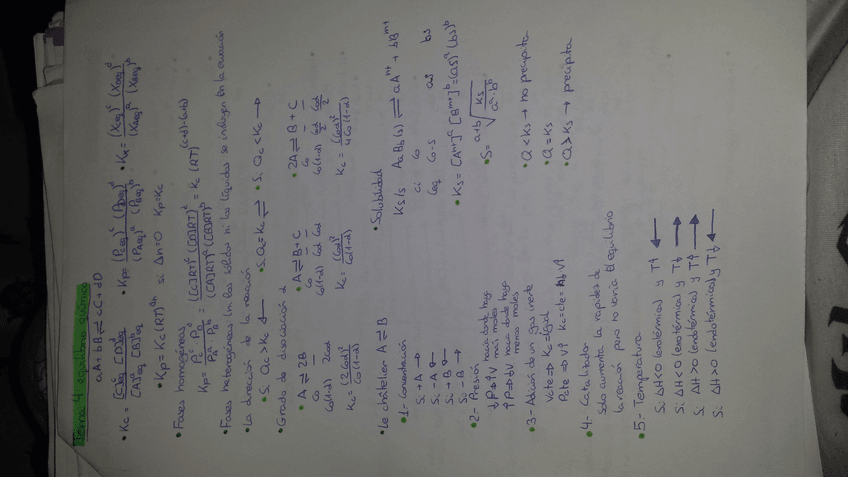 Tema 4 equilibrio químico
aA + bB ⇌ cC + dD
• Kc = [C]eq^c [D]eq^d / [A]eq^a [B]eq^b • Kp = (PCeq)^c (PDeq)^d / (PAeq)^a (PBeq)^b • Kx = (XCeq)^c (XDeq)^d / (XAeq)^a (XBeq)^b
• Kp = Kc(RT)^Δn si Δn=0 Kp=Kc
• Fases homogéneas
Kp = PC^c · PD^d / PA^a · PB^b = ([C]RT)^c ([D]RT)^d / ([A]RT)^a ([B]RT)^b = Kc (RT)^(c+d)-(a+b)
• Fases heterogéneas (ni los sólidos ni los líquidos se incluyen en la ecuación
• La dirección de la reacción
• Si Qc > Kc ← • Si Qc = Kc ⇌ • Si Qc < Kc →
• Grado de disociación α
• A ⇌ 2B • A ⇌ B + C • 2A ⇌ B + C
Co — Co — — Co — —
Co(1-α) 2Coα Co(1-α) Coα Coα Co(1-α) Coα/2 Coα/2
Kc = (2Coα)² / Co(1-α) Kc = (Coα)² / Co(1-α)
• Le châtelier A ⇌ B
• 1- Concentración
Si + A →
Si - A ←
Si + B ←
Si - B →
• 2- Presión
↓P→↑V hacia donde haya más moles
↑P→↓V hacia donde haya menos moles
• 3- Adición de un gas inerte
Vcte → Kc=igual
Pcte → V↑
• 4- Catalizador
Solo aumenta la rapidez de
la reacción pero no varía el equilibrio
• 5- Temperatura
Si ΔH<0 (exotérmica) y T↑ ←
Si ΔH<0 (exotérmica) y T↓ →
Si ΔH>0 (endotérmica) y T↑ →
Si ΔH>0 (endotérmica) y T↓ ←
• Solubilidad
Ks/s AaBb(s) ⇌ aA^n+ + bB^m-
ci Co
Ceq Co-s as bs
• Ks = [A^n+]^a [B^m-]^b = (as)^a (bs)^b
• S = a+b√(Ks / a^a · b^b)
• Q < Ks → no precipita
• Q = Ks
• Q > Ks → precipita